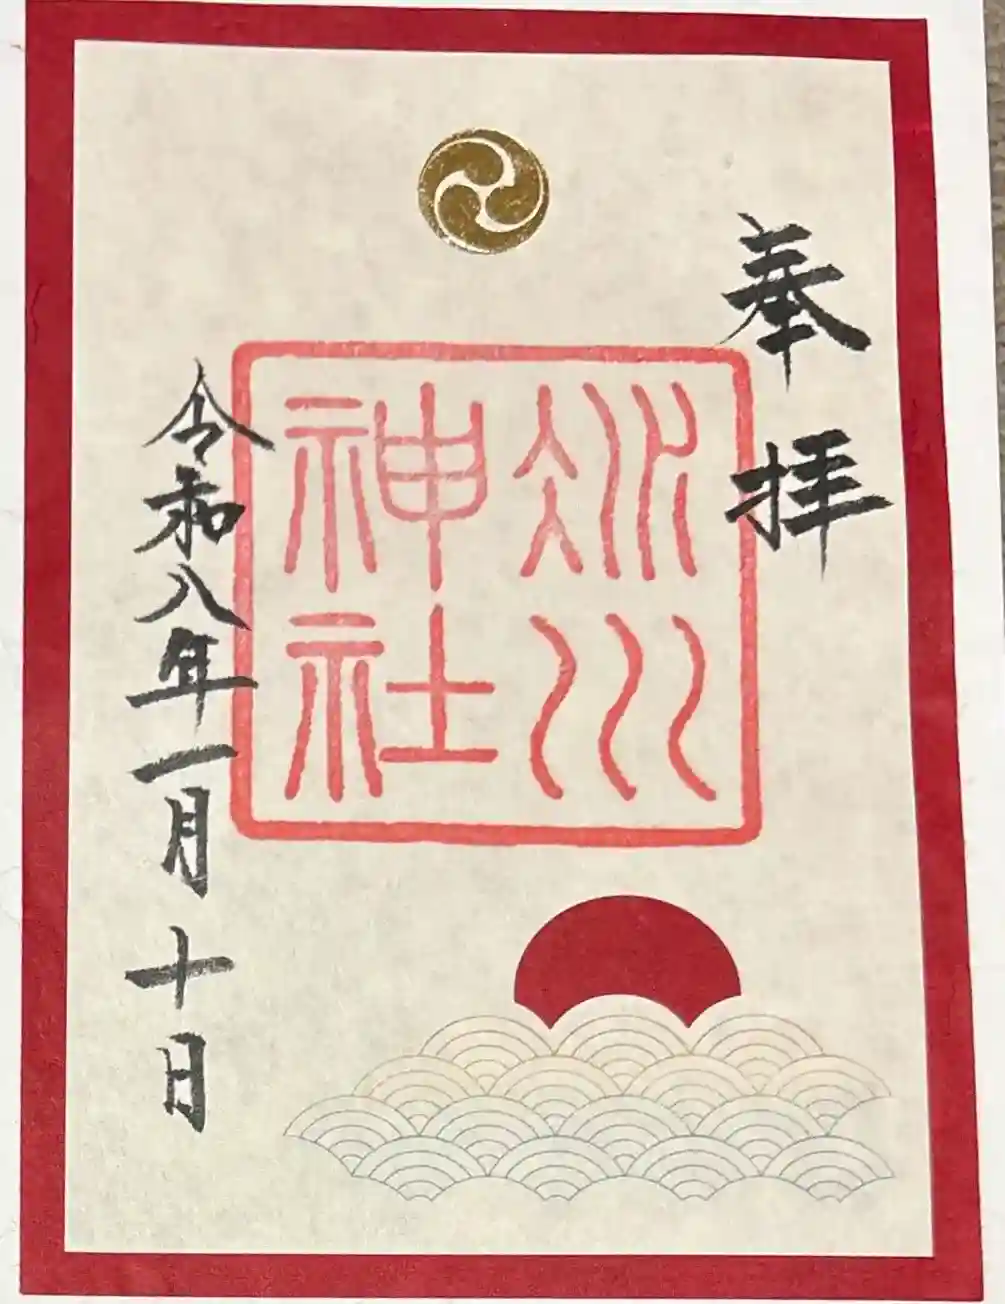 奉拝
冰川
神社
令和八年一月十日